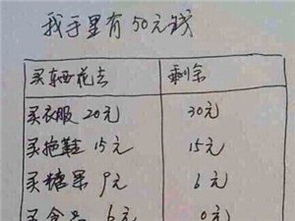 我手里有50元钱
买东西花去 剩余
买衣服 20元 30元
买拖鞋 15元 15元
买糖果 9元 6元
买食品 6元 0元